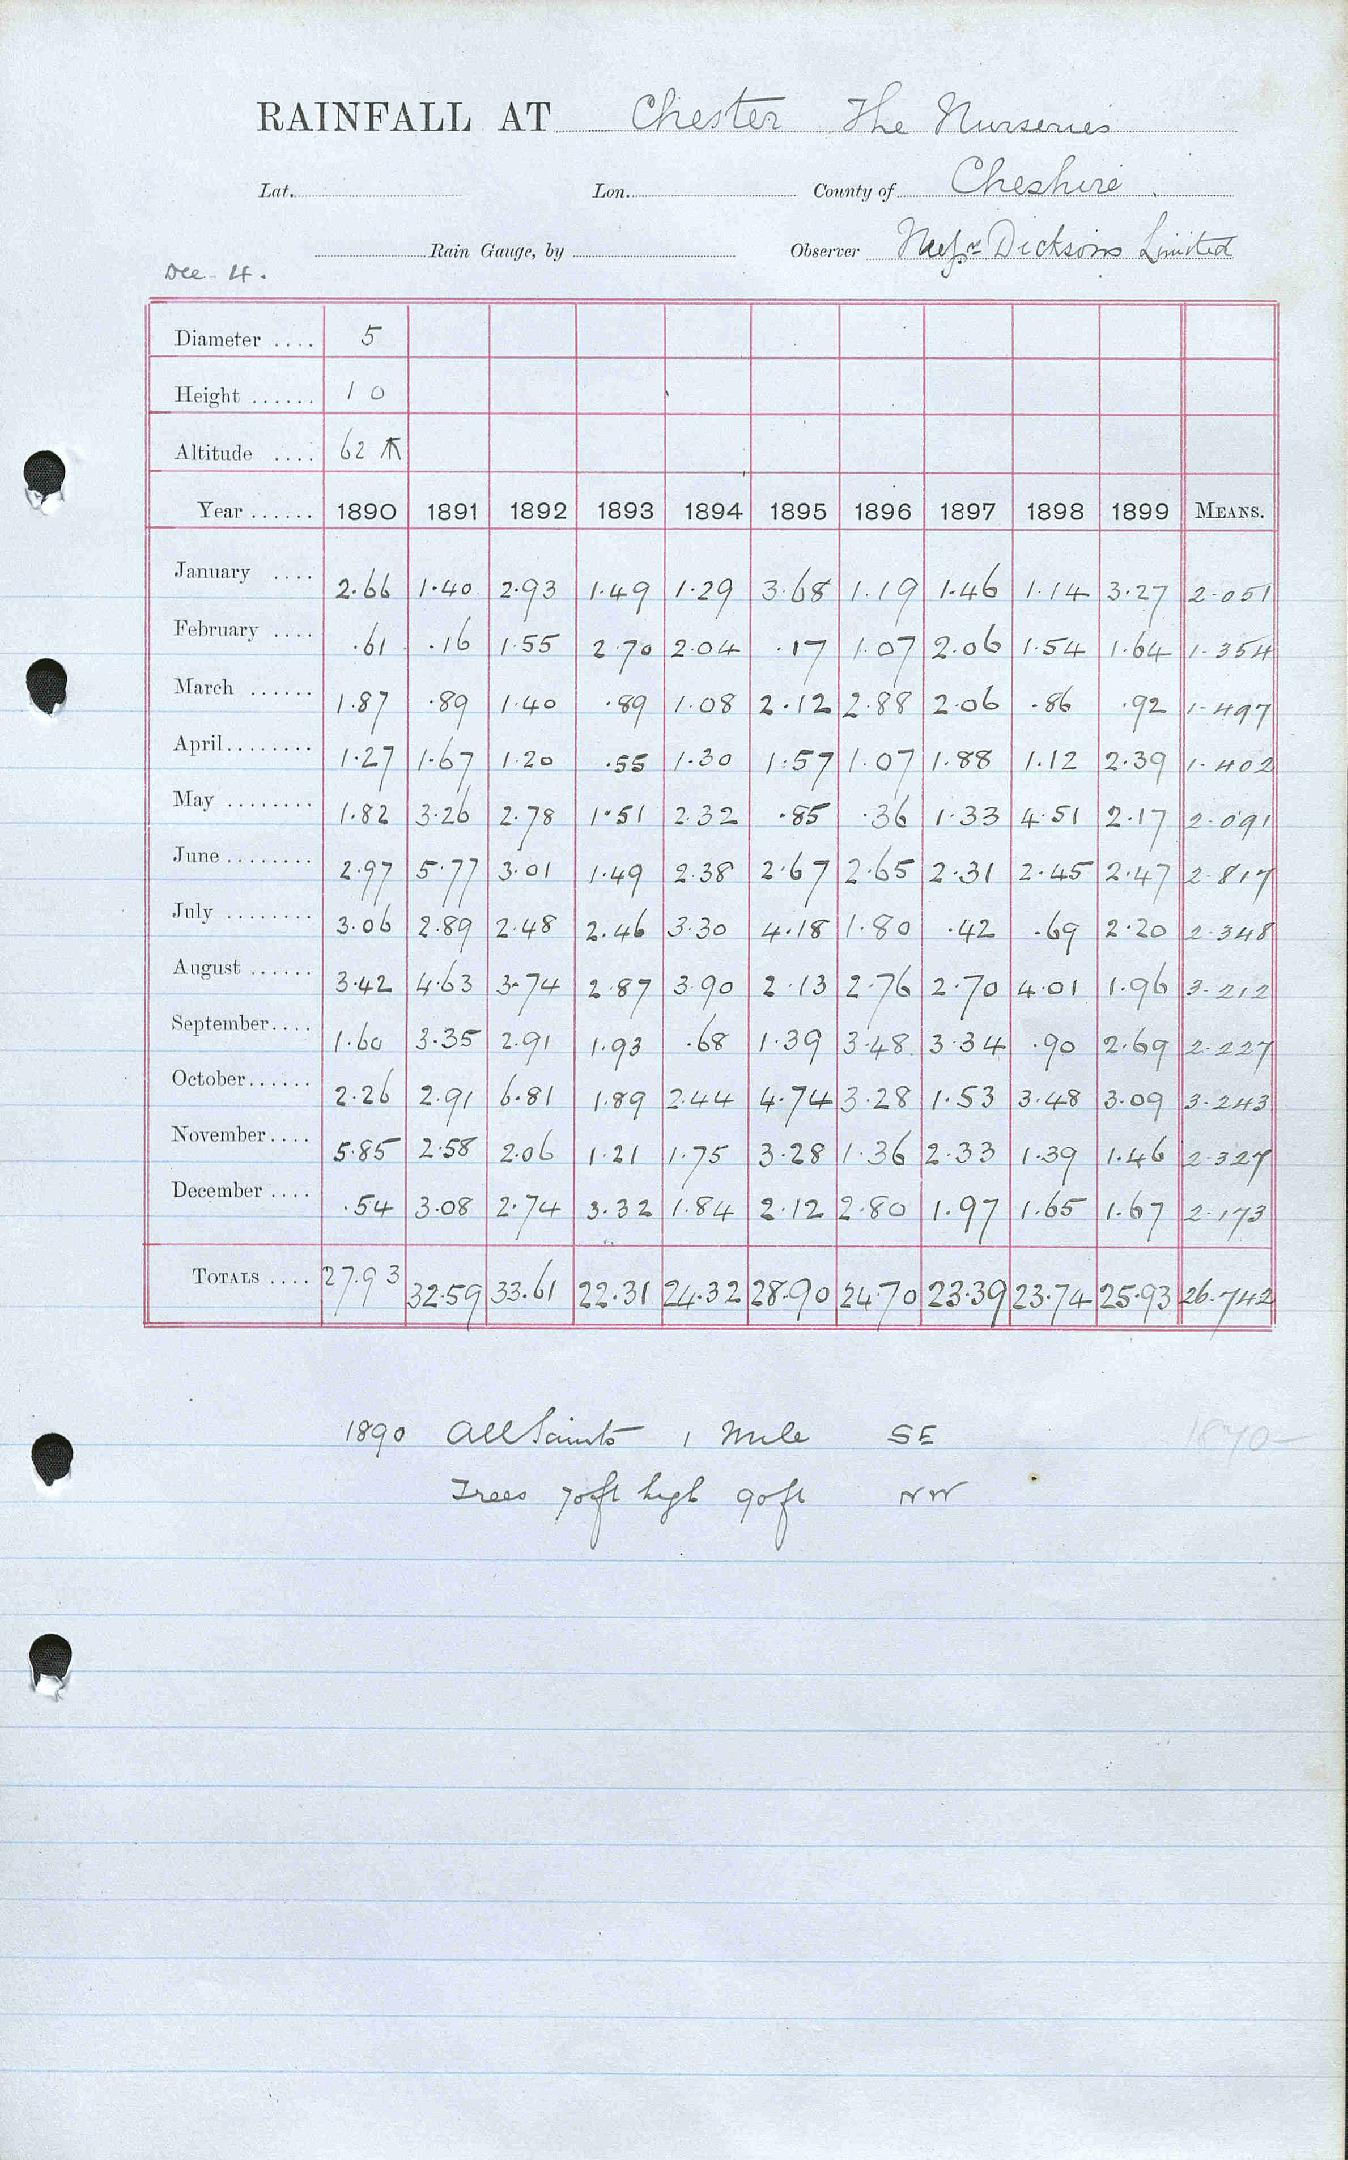 RAINFALL AT Chester The Nurseries
Lat. Lon. County of Cheshire
Rain Gauge, by Observer Messrs Dicksons Limited
Dec - 4.
Diameter .... 5
Height ...... 1 0
Altitude .... 62
Year ...... 1890 1891 1892 1893 1894 1895 1896 1897 1898 1899 MEANS.
January .... 2.66 1.40 2.93 1.49 1.29 3.68 1.19 1.46 1.14 3.27 2.051
February .... .61 .16 1.55 2.70 2.04 .17 1.07 2.06 1.54 1.64 1.354
March ...... 1.87 .89 1.40 .89 1.08 2.12 2.88 2.06 .86 .92 1.497
April........ 1.27 1.67 1.20 .55 1.30 1.57 1.07 1.88 1.12 2.39 1.402
May ........ 1.82 3.26 2.78 1.51 2.32 .85 .36 1.33 4.51 2.17 2.091
June ........ 2.97 5.77 3.01 1.49 2.38 2.67 2.65 2.31 2.45 2.47 2.817
July ........ 3.06 2.89 2.48 2.46 3.30 4.18 1.80 .42 .69 2.20 2.348
August ...... 3.42 4.63 3.74 2.87 3.90 2.13 2.76 2.70 4.01 1.96 3.212
September.... 1.60 3.35 2.91 1.93 .68 1.39 3.48 3.34 .90 2.69 2.227
October...... 2.26 2.91 6.81 1.89 2.44 4.74 3.28 1.53 3.48 3.09 3.243
November.... 5.85 2.58 2.06 1.21 1.75 3.28 1.36 2.33 1.39 1.46 2.327
December .... .54 3.08 2.74 3.32 1.84 2.12 2.80 1.97 1.65 1.67 2.173
TOTALS .... 27.93 32.59 33.61 22.31 24.32 28.90 24.70 23.39 23.74 25.93 26.742
1890 All Saints 1 Mile SE 1870
Trees 70ft high 90ft NW